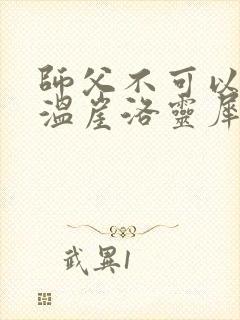 師父不可以
溫崖洛靈犀
武異1